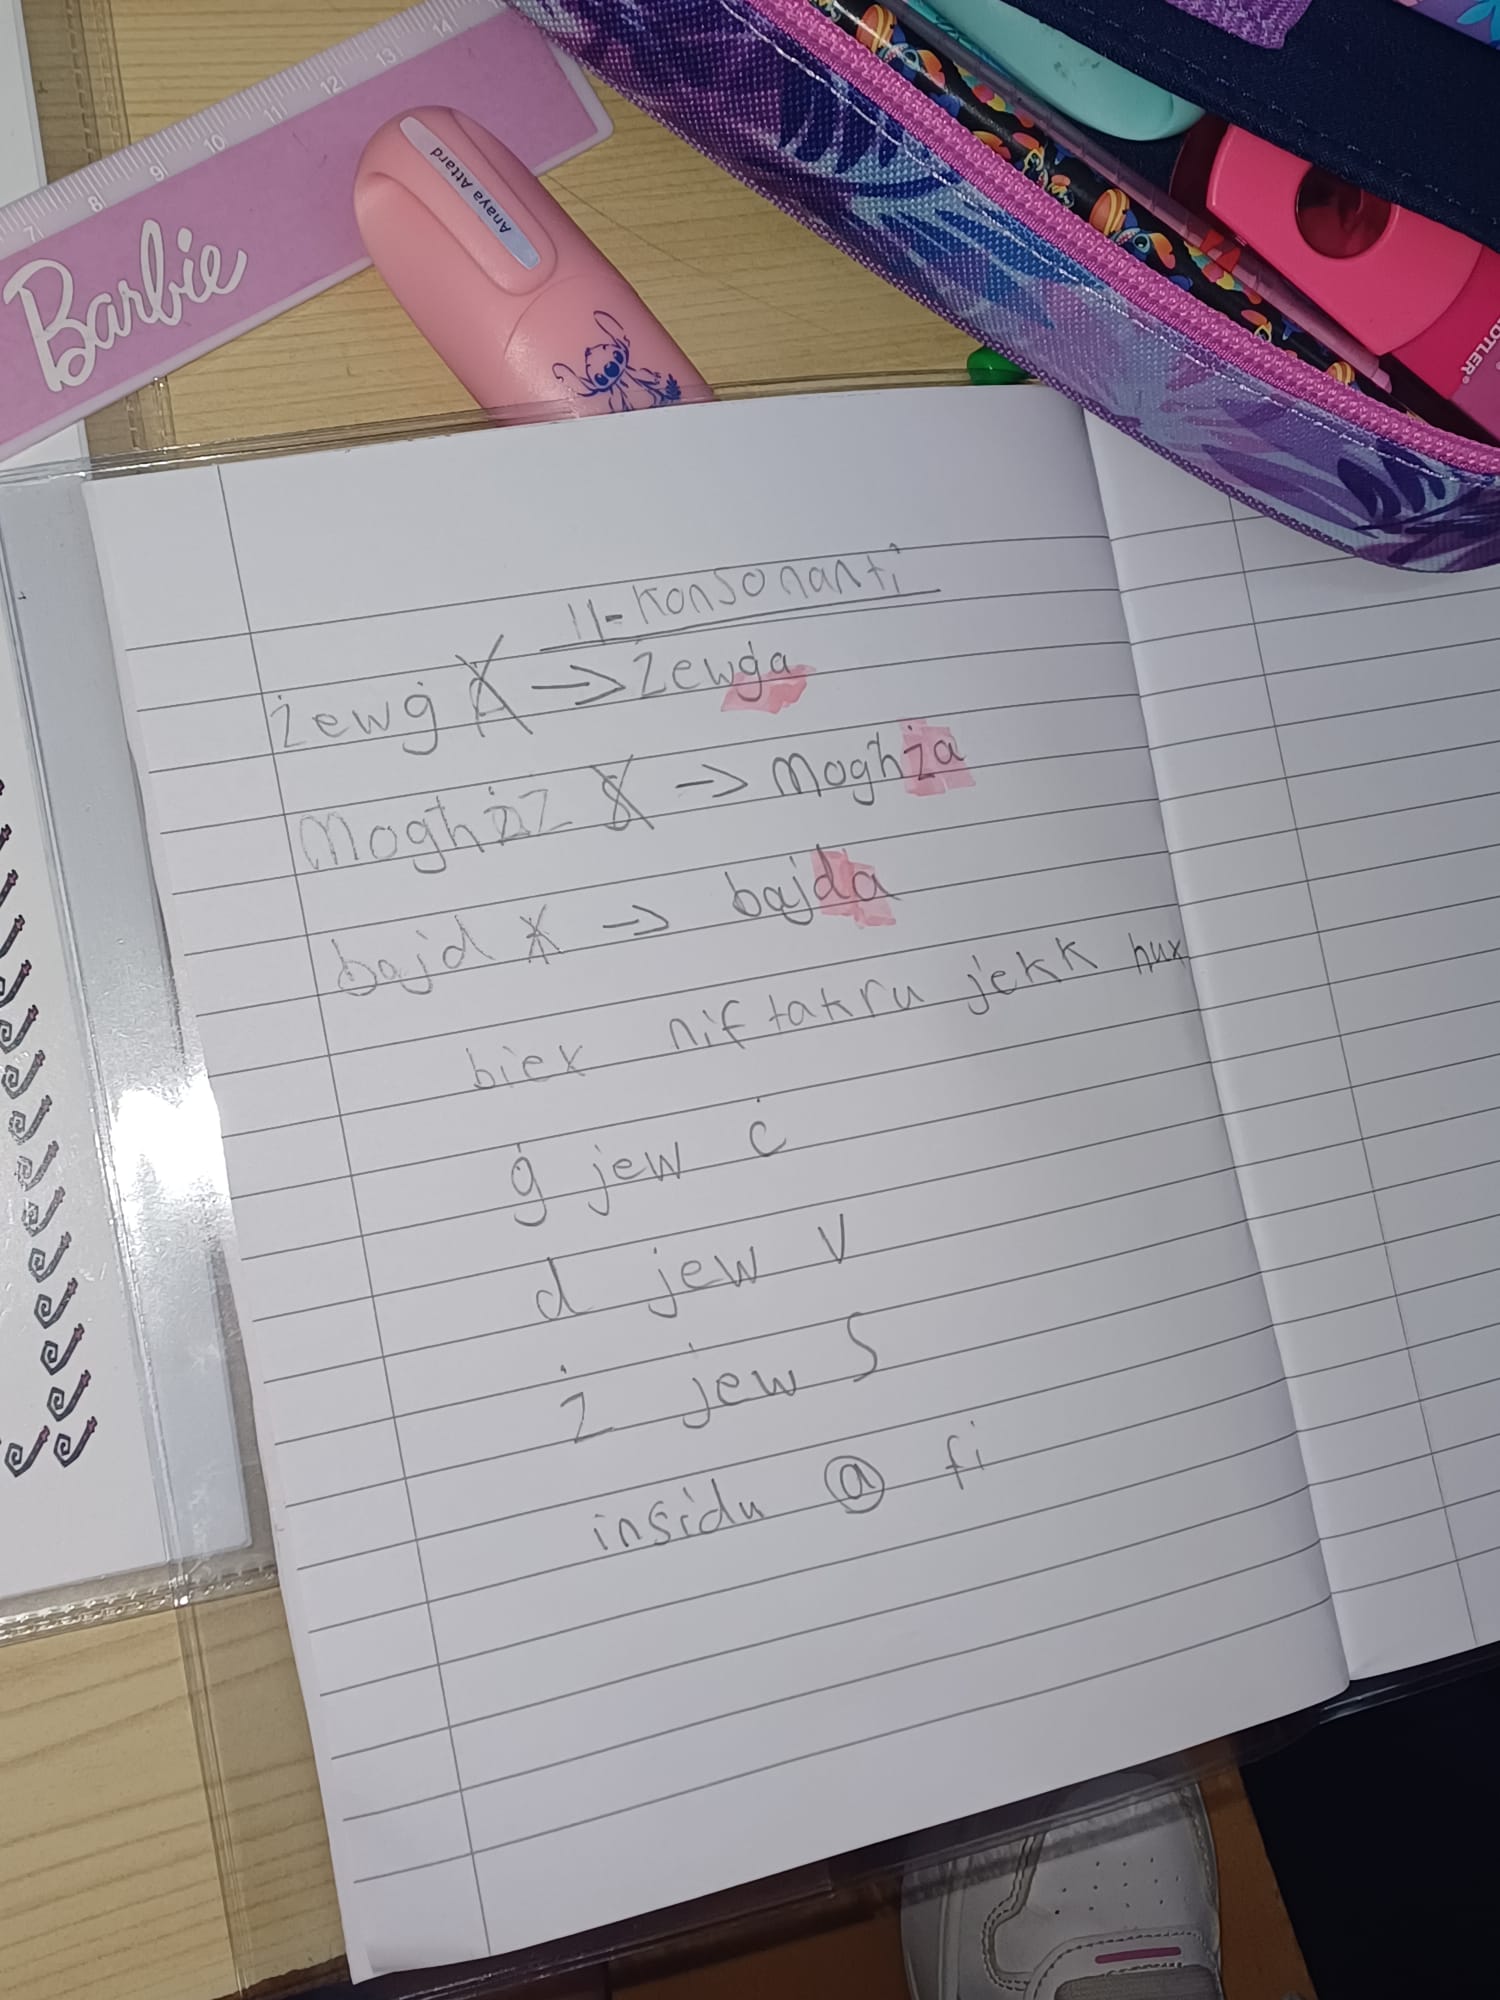 14
13
12
11
10
9
8
7
Barbie
Anaya Attard
DTLER®
Il-Konsonanti
żewġ → żewġa
Mogħż → mogħża
bajd → bajda
biex niftakru jekk hux
ġ jew ċ
d jew v
ż jew s
insidu @ fi